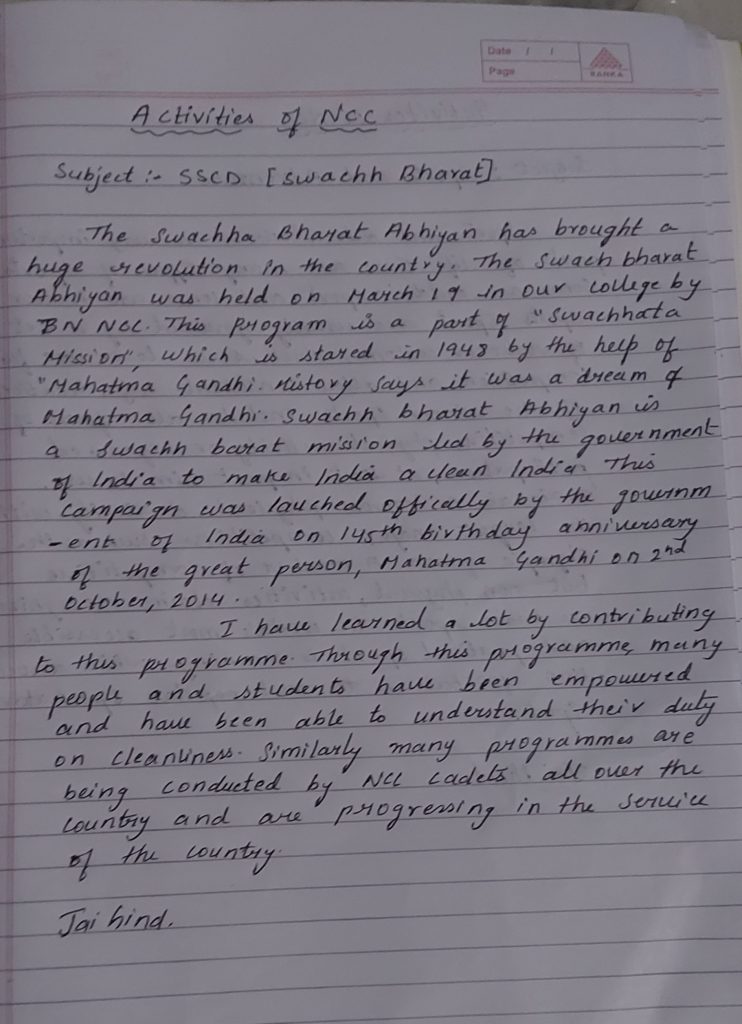 Date / /
Page
RANKA
Activities of NCC
Subject :- SSCD [Swachh Bharat]
The Swachha Bharat Abhiyan has brought a
huge revolution in the country. The Swach bharat
Abhiyan was held on March 19 in our college by
BN NCC. This Program is a part of "Swachhata
Mission", which is stared in 1948 by the help of
"Mahatma Gandhi. History says it was a dream of
Mahatma Gandhi. Swachh bharat Abhiyan is
a Swachh barat mission led by the government
of India to make India a clean India. This
campaign was lauched offically by the governm
-ent of India on 145th birthday anniversary
of the great person, Mahatma Gandhi on 2nd
October, 2014.
I have learned a lot by contributing
to this programme. Through this programme, many
people and students have been empowered
and have been able to understand their duty
on cleanliness. Similarly many programmes are
being conducted by NCC cadets. all over the
country and are progressing in the service
of the country.
Jai hind.